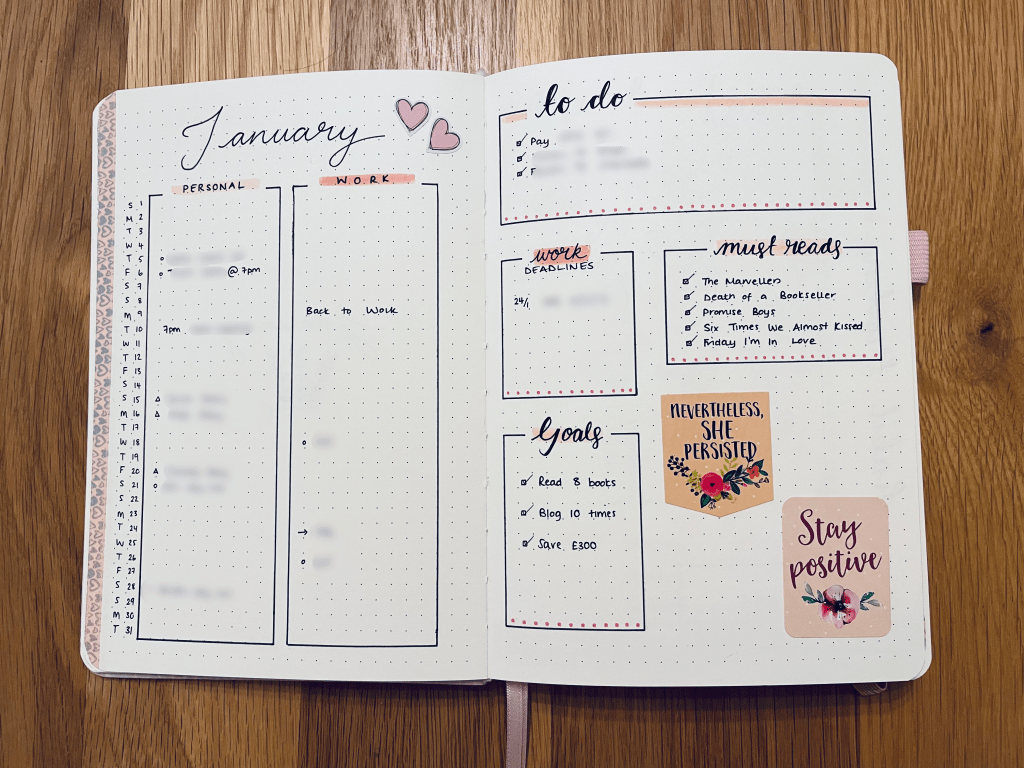 January
PERSONAL
WORK
S 1
M 2
T 3
W 4
T 5
F 6 @ 7pm
S 7
S 8
M 9 Back to Work
T 10 7pm
W 11
T 12
F 13
S 14
S 15
M 16
T 17
W 18
T 19
F 20
S 21
S 22
M 23
T 24
W 25
T 26
F 27
S 28
S 29
M 30
T 31
to do
Pay
F
work
DEADLINES
24/1
must reads
The Marvellers
Death of a Bookseller
Promise Boys
Six Times We Almost Kissed
Friday I'm In Love
Goals
Read 8 books
Blog 10 times
Save £300
NEVERTHELESS,
SHE
PERSISTED
Stay
positive